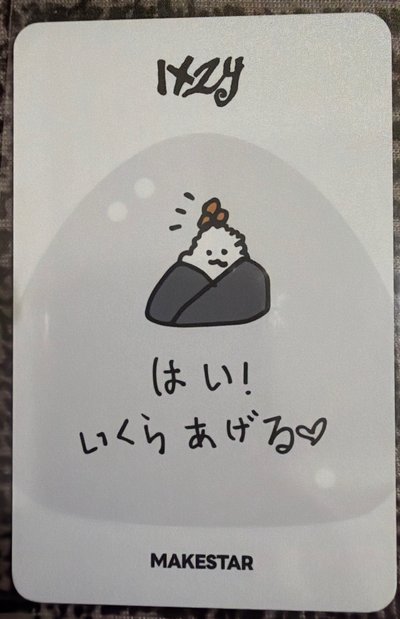 ITZY
はい!
いくら あげる♡
MAKESTAR